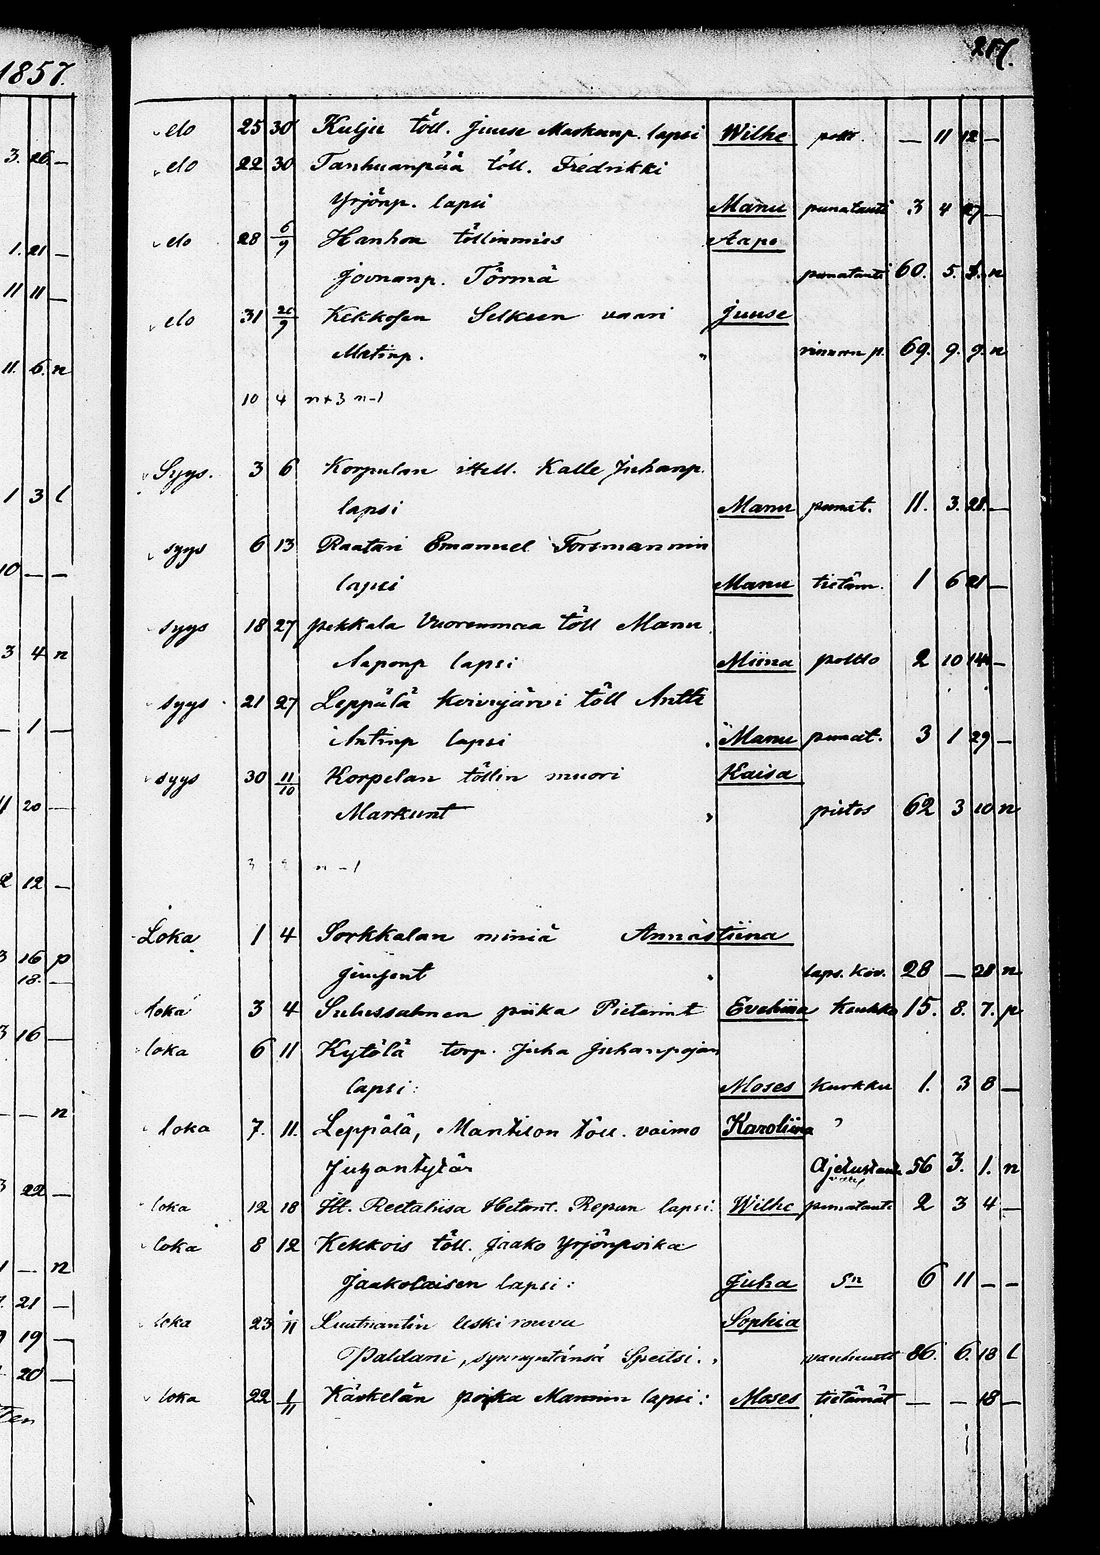 1857.
217.
elo 25 30 Kulju töll. Juuse Markunp. lapsi Wilhe polt. — 11 12 —
elo 22 30 Tanhuanpää töll. Fredrikki
Yrjönp. lapsi Manu punatauti 3 4 27 —
elo 28 6/9 Hanhon töllinmies Aapo
Joonanp. Törmä punatauti 60. 5. n
elo 31 26/9 Kekkosen Selkeen vaari Juuse
Matinp. rinnan p. 69. 9. 9. n
10 4 n+3 n-1
Syys. 3 6 Korpulan itell. Kalle Juhanp.
lapsi Manu punat. 11. 3. 28. —
syys 6 13 Raatari Emanuel Forsmannin
lapsi Manu tietäm. 1 6 21 —
syys 18 27 pekkala Vuorenmaa töll Manu
Aaponp lapsi Miina poltto 2 10 14 —
syys 21 27 Leppälä Koivujärvi töll Antti
Antinp lapsi Manu punat. 3 1 29 —
syys 30 11/10 Korpelan töllin muori Kaisa
Markunt pistos 62 3 10 n
3 n-1
Loka 1 4 Sorkkalan miniä Annastiina
Juusont laps. kov. 28 — 28 n
loka 3 4 Suhessalmen piika Pietarint Eveliina Keuhko 15. 8. 7. p
loka 6 11 Kytölä torp. Juha Juhanpojan
lapsi: Moses Kurkku 1. 3 8 —
loka 7. 11. Leppälä, Mantilon töll. vaimo Karoliina ?
Juhontytär Ajetustauti 56 3. 1. n
loka 12 18 Itl. Reetaliisa Hetant. Repun lapsi: Wilhe punatauti 2 3 4 —
loka 8 12 Kekkois töll. Jaako Yrjönpoika
Jaakolaisen lapsi: Juha sn 6 11 — —
loka 23 1/11 Luutnantin leski rouva Sophia
Paldani, synnyntänsä Speitsi. vanhuutt 86. 6. 18 l
loka 22 1/11 Käskelän poika Mannin lapsi: Moses tietämät — — 18 —